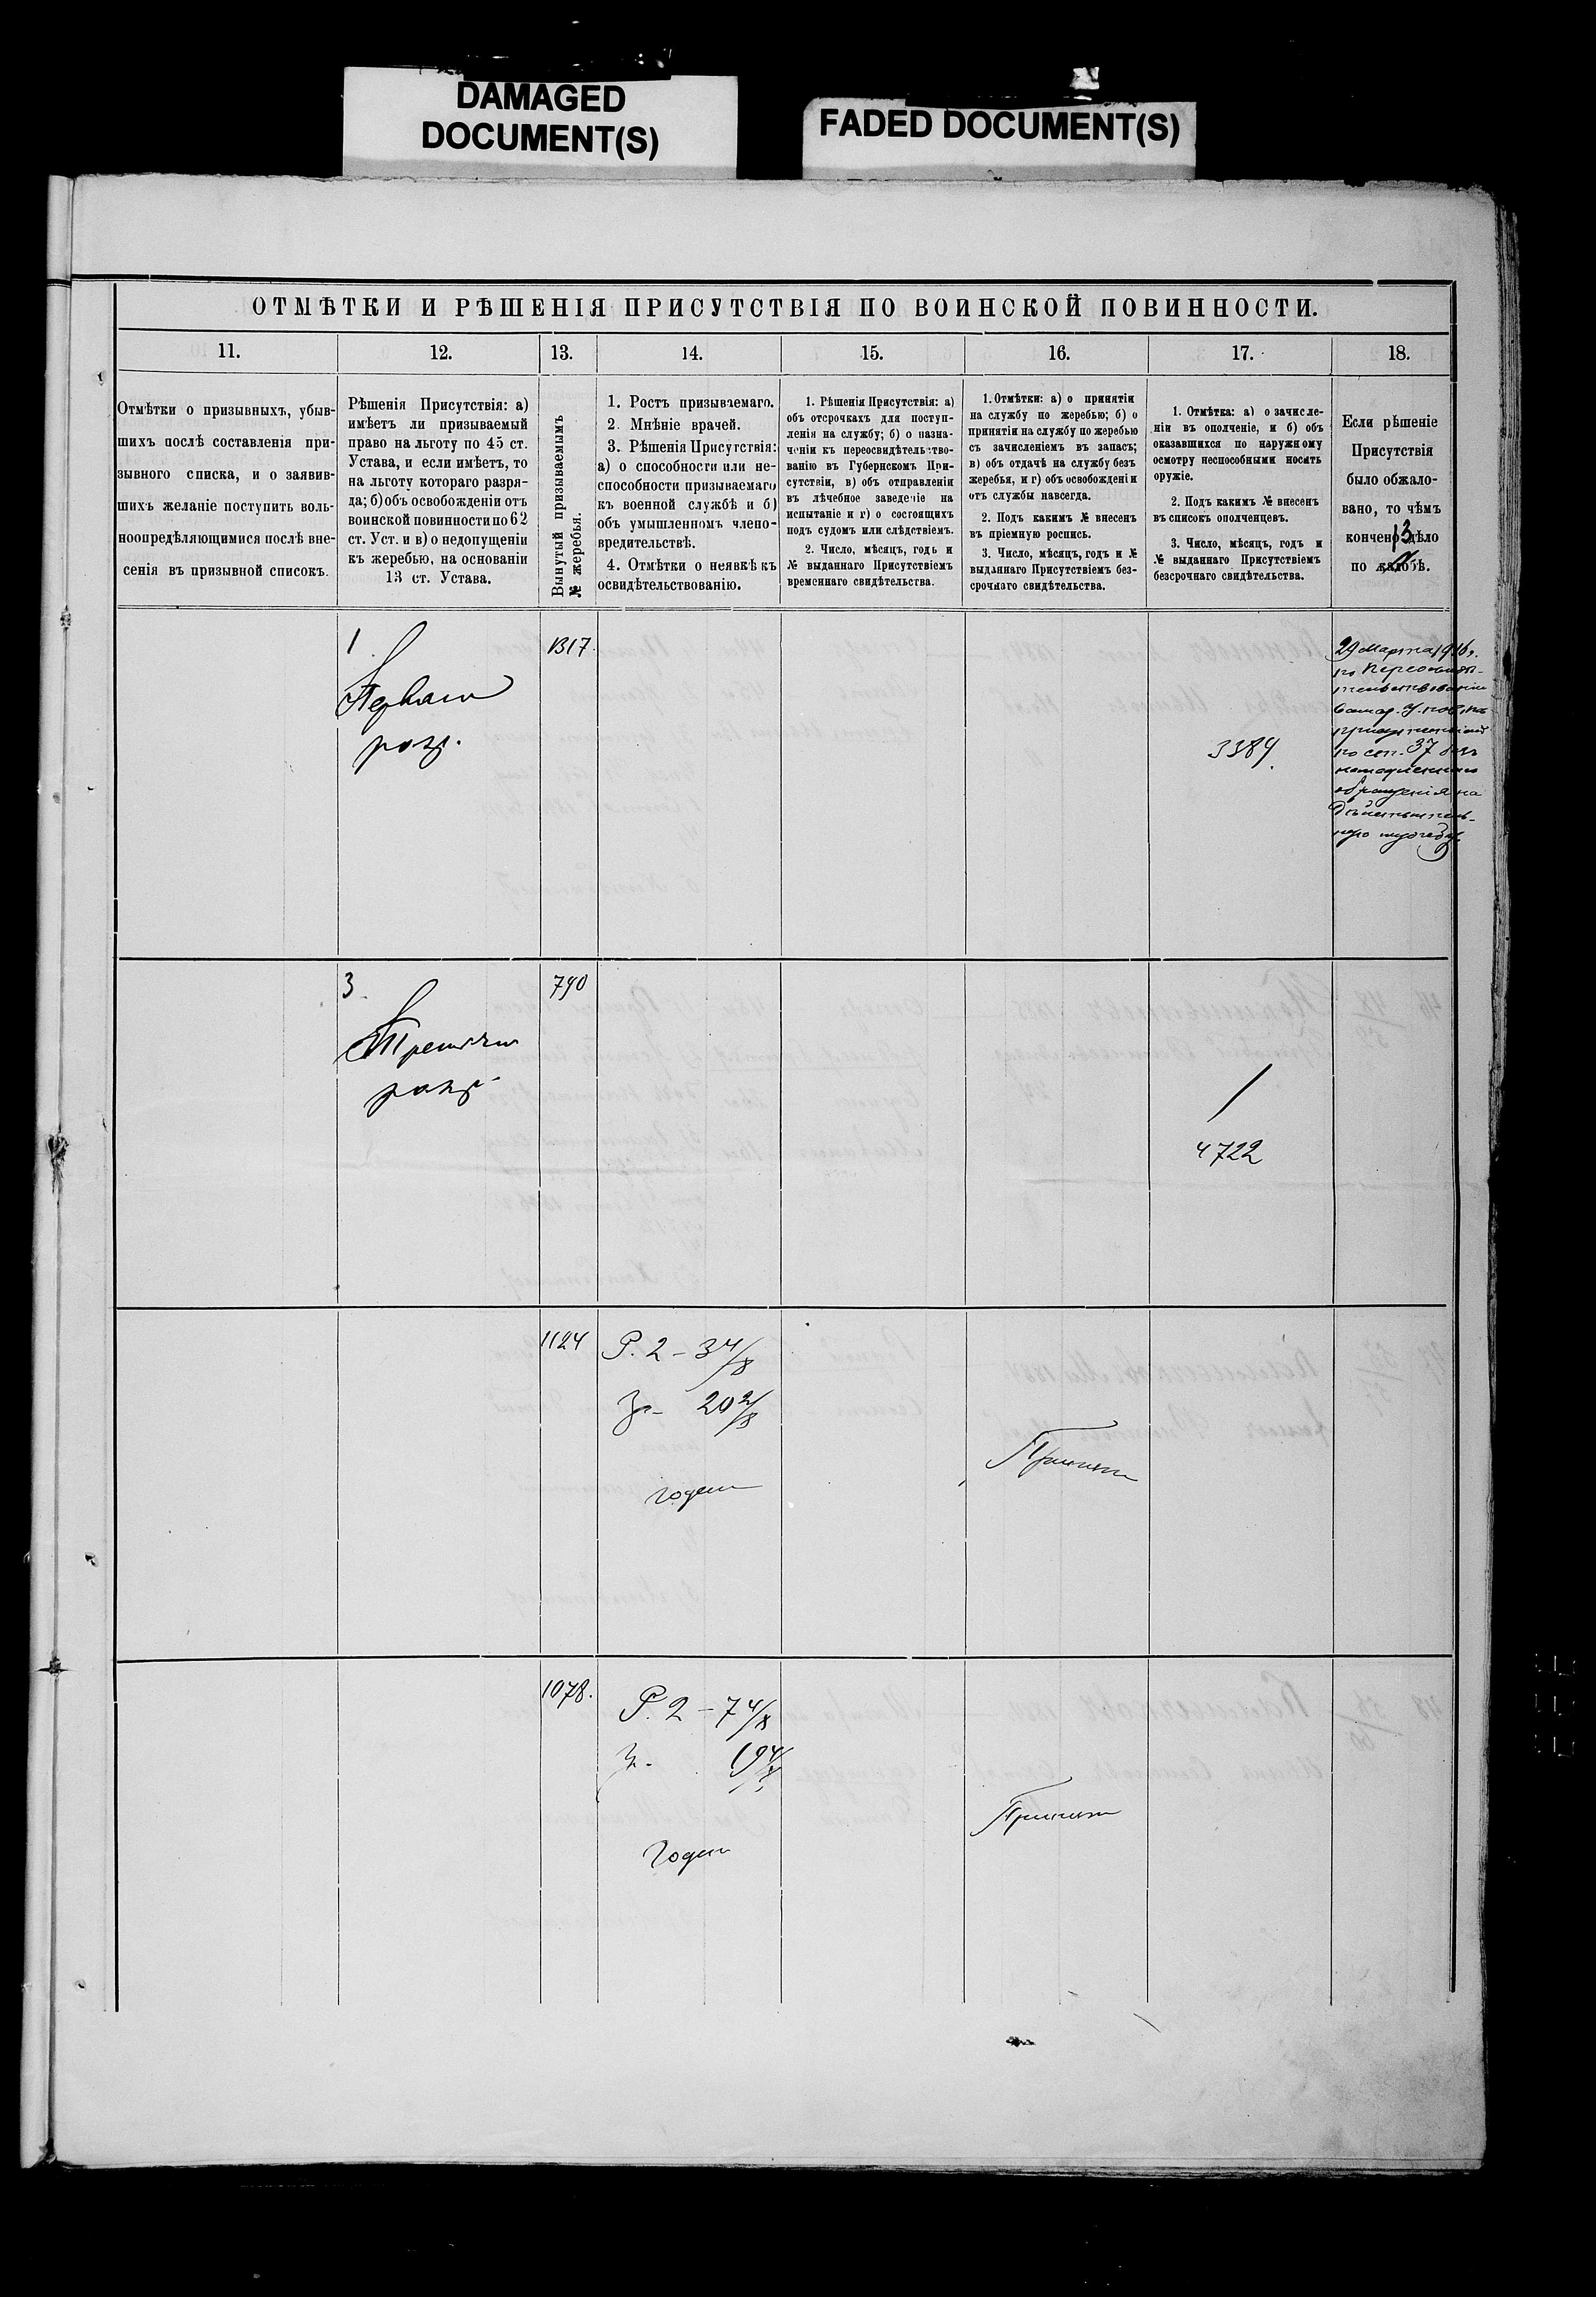 DAMAGED
DOCUMENT(S)
FADED DOCUMENT(S)
ОТМѢТКИ И РѢШЕНІЯ ПРИСУТСТВІЯ ПО ВОИНСКОЙ ПОВИННОСТИ.
11.
12.
13.
14.
15.
16.
17.
18.
Отмѣтки о призывныхъ, убыв-
шихъ послѣ составленія при-
зывного списка, и о заявив-
шихъ желаніе поступить воль-
ноопредѣляющимися послѣ вне-
сенія въ призывной списокъ.
Рѣшенія Присутствія: а)
имѣетъ ли призываемый
право на льготу по 45 ст.
Устава, и если имѣетъ, то
на льготу котораго разря-
да; б) объ освобожденіи отъ
воинской повинности по 62
ст. Уст. и в) о недопущеніи
къ жеребью, на основаніи
13 ст. Устава.
Вынутый призываемымъ
№ жеребья.
1. Ростъ призываемаго.
2. Мнѣніе врачей.
3. Рѣшенія Присутствія:
а) о способности или не-
способности призываемаго
къ военной службѣ и б)
объ умышленномъ члено-
вредительствѣ.
4. Отмѣтки о неявкѣ къ
освидѣтельствованію.
1. Рѣшенія Присутствія: а)
объ отсрочкахъ для поступ-
ленія на службу; б) о назна-
ченіи къ переосвидѣтельство-
ванію въ Губернскомъ При-
сутствіи, в) объ отправленіи
въ лѣчебное заведеніе на
испытаніе и г) о состоящихъ
подъ судомъ или слѣдствіемъ.
2. Число, мѣсяцъ, годъ и
№ выданнаго Присутствіемъ
временнаго свидѣтельства.
1. Отмѣтки: а) о принятіи
на службу по жеребью; б) о
принятіи на службу по жеребью
съ зачисленіемъ въ запасъ;
в) объ отдачѣ на службу безъ
жеребья, и г) объ освобожденіи
отъ службы навсегда.
2. Подъ какимъ № внесенъ
въ пріемную роспись.
3. Число, мѣсяцъ, годъ и №
выданнаго Присутствіемъ без-
срочнаго свидѣтельства.
1. Отмѣтка: а) о зачисле-
ніи въ ополченіе, и б) объ
оказавшихся по наружному
осмотру неспособными носить
оружіе.
2. Подъ какимъ № внесенъ
въ списокъ ополченцевъ.
3. Число, мѣсяцъ, годъ и
№ выданнаго Присутствіемъ
безсрочнаго свидѣтельства.
Если рѣшеніе
Присутствія
было обжало-
вано, то чѣмъ
кончено дѣло
по жалобѣ.
13
1
Первый
разр.
1317.
3384.
29 Марта 1916 г.
по Переосвидѣ-
тельствованіи
по ст. 37 безъ
обращенія на
дѣйствитель-
ную службу
3
Третьяго
разр.
790
4722
1124
Р. 2 - 3 4/8
Гр - 20 2/8
годен
Принят
1078.
Р. 2 - 7 4/8
19 4/8
Годен
Принят